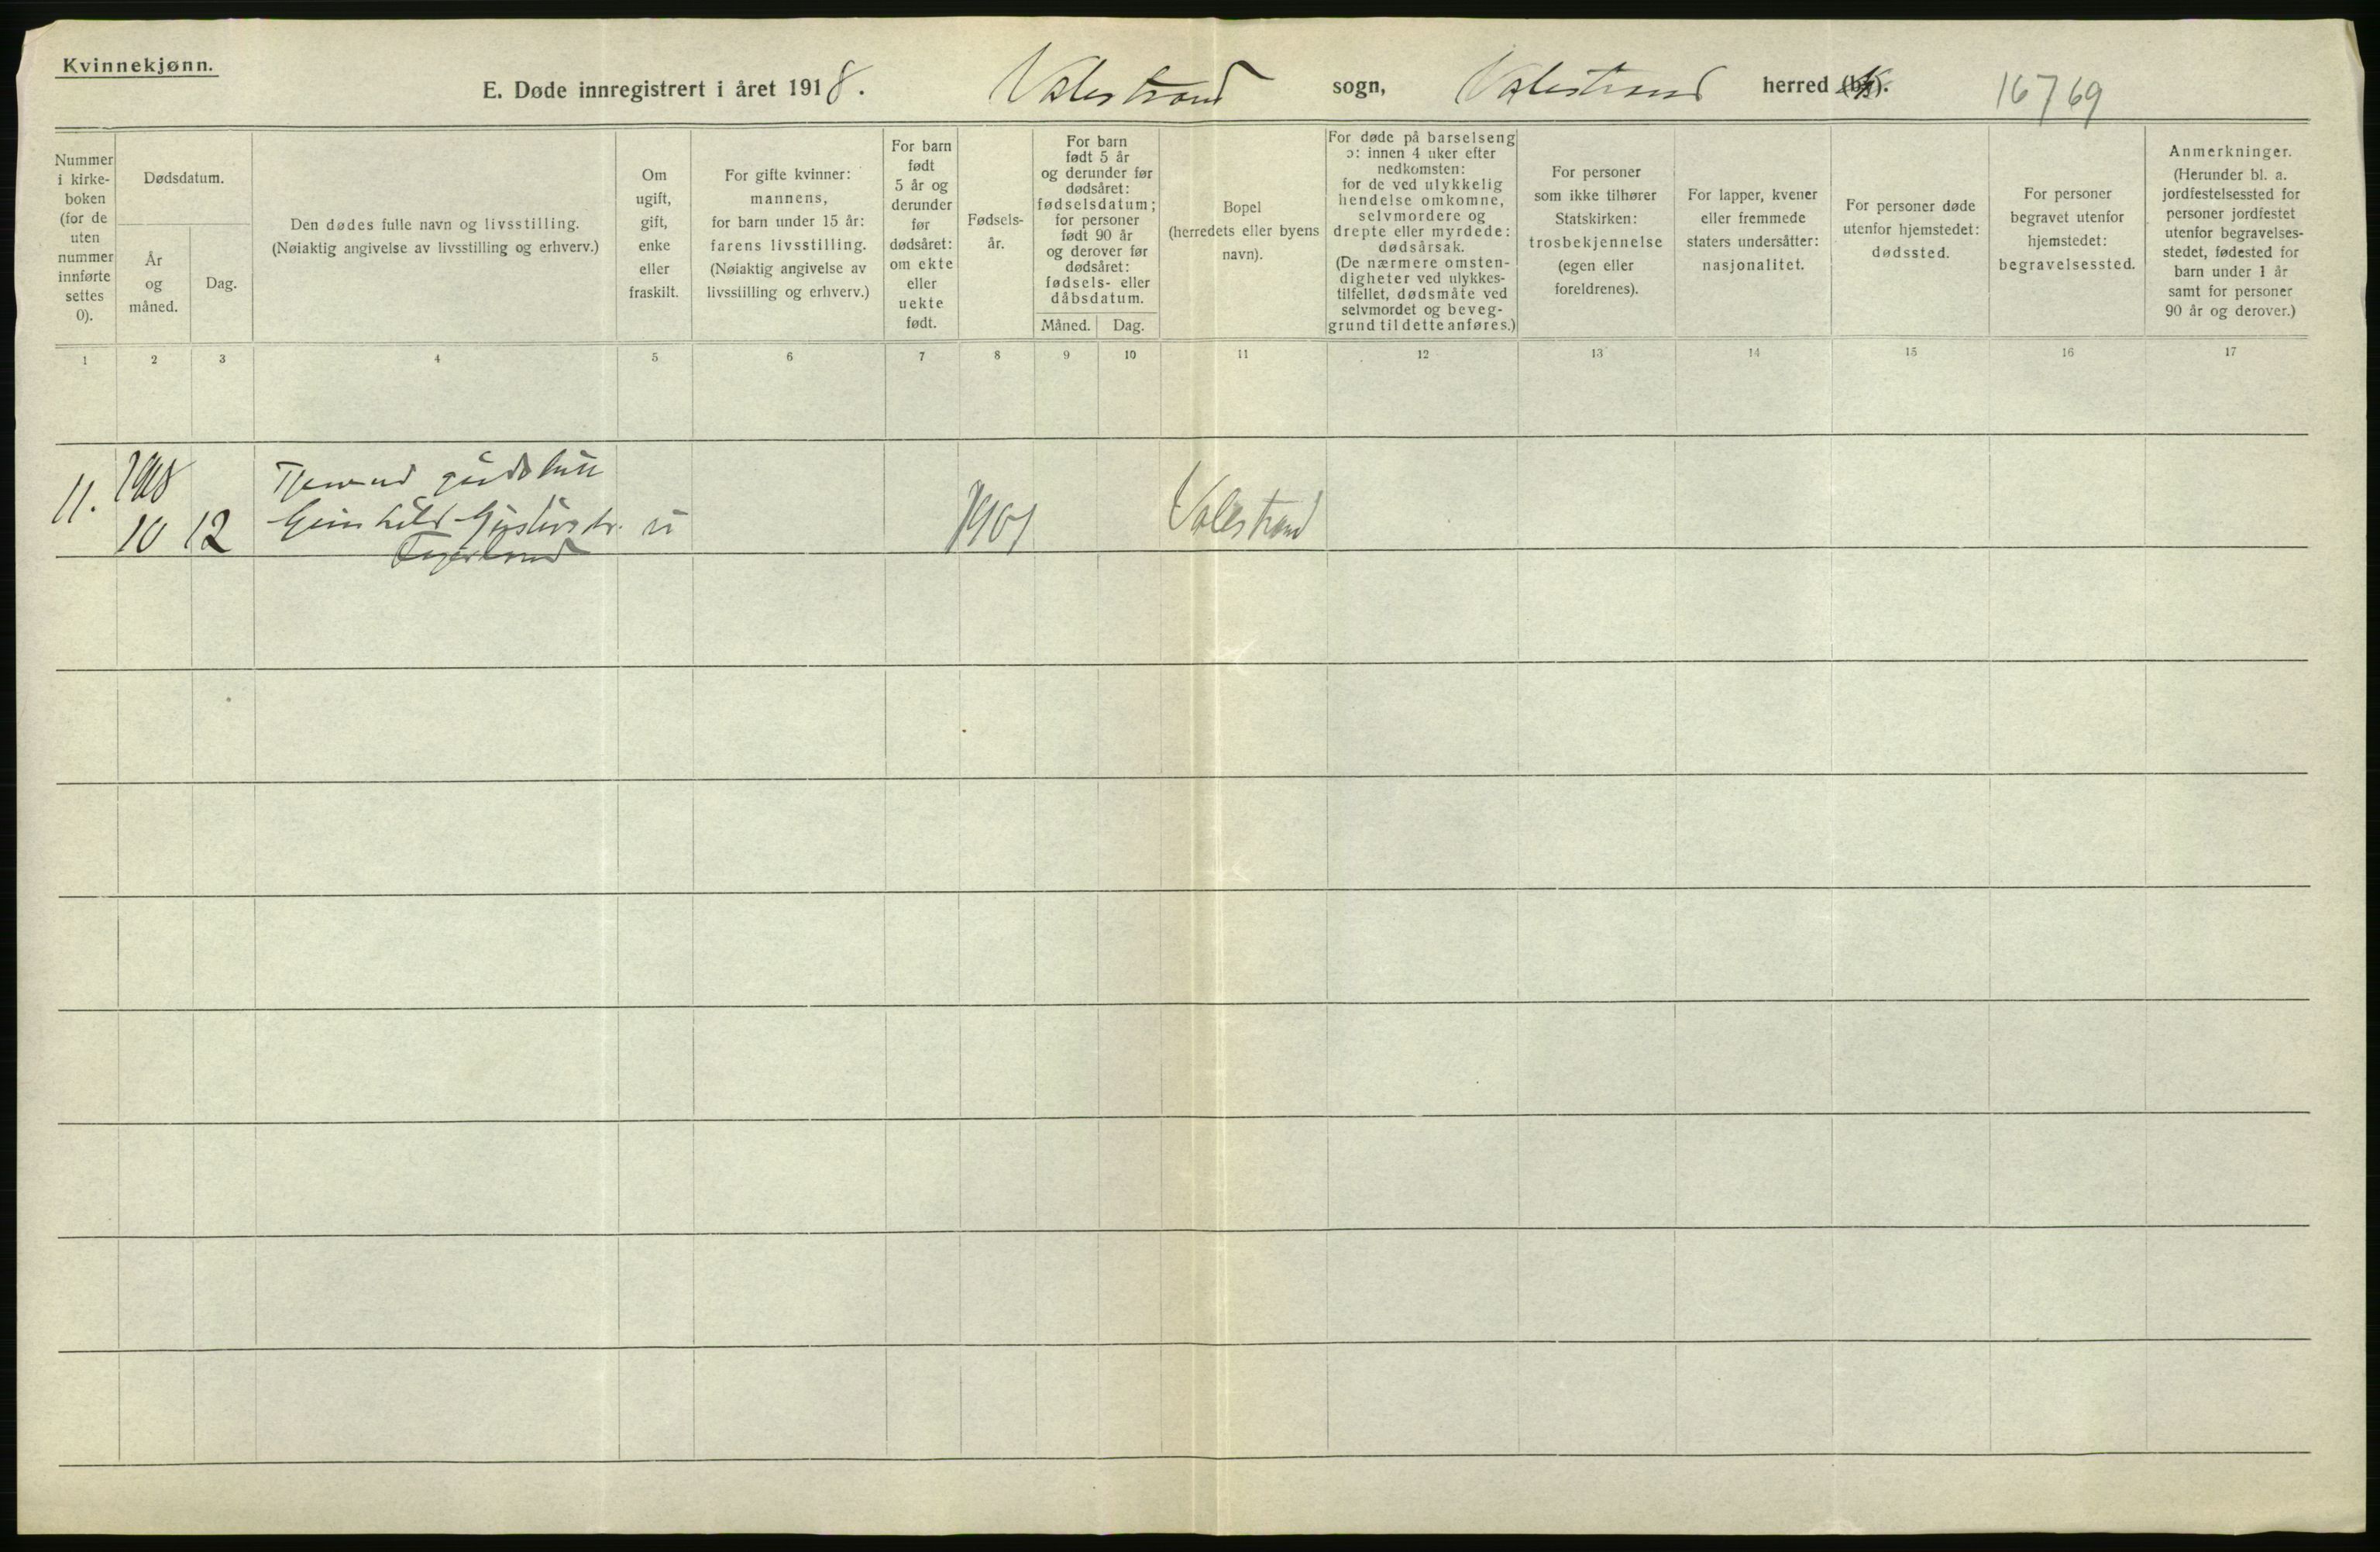 Kvinnekjønn.
E. Døde innregistrert i året 1918. Valestrand sogn, Valestrand herred (by). 16769
Nummer i kirke- boken (for de uten nummer innførte settes 0).
Dødsdatum.
År og måned.
Dag.
Den dødes fulle navn og livsstilling.
(Nøiaktig angivelse av livsstilling og erhverv.)
Om ugift, gift, enke eller fraskilt.
For gifte kvinner: mannens, for barn under 15 år: farens livsstilling. (Nøiaktig angivelse av livsstilling og erhverv.)
For barn født 5 år og derunder før dødsåret: om ekte eller uekte født.
Fødsels- år.
For barn født 5 år og derunder før dødsåret: fødselsdatum; for personer født 90 år og derover før dødsåret: fødsels- eller dåbsdatum.
Måned.
Dag.
Bopel (herredets eller byens navn).
For døde på barselseng ɔ: innen 4 uker efter nedkomsten: for de ved ulykkelig hendelse omkomne, selvmordere og drepte eller myrdede: dødsårsak. (De nærmere omsten- digheter ved ulykkes- tilfellet, dødsmåte ved selvmordet og beveg- grund til dette anføres.)
For personer som ikke tilhører Statskirken: trosbekjennelse (egen eller foreldrenes).
For lapper, kvener eller fremmede staters undersåtter: nasjonalitet.
For personer døde utenfor hjemstedet: dødssted.
For personer begravet utenfor hjemstedet: begravelsessted.
Anmerkninger. (Herunder bl. a. jordfestelsessted for personer jordfestet utenfor begravelses- stedet, fødested for barn under 1 år samt for personer 90 år og derover.)
1 2 3 4 5 6 7 8 9 10 11 12 13 14 15 16 17
1918
11. 10 12 u 1901 Valestrand